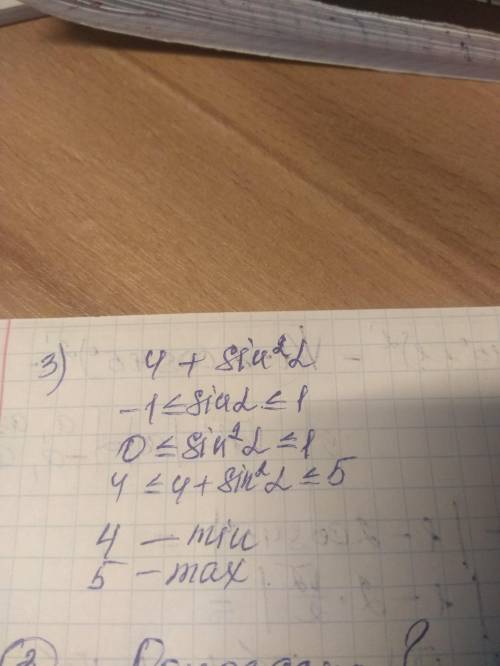 3) 4 + sin²α
-1 ≤ sinα ≤ 1
0 ≤ sin²α ≤ 1
4 ≤ 4 + sin²α ≤ 5
4 – min
5 – max
②